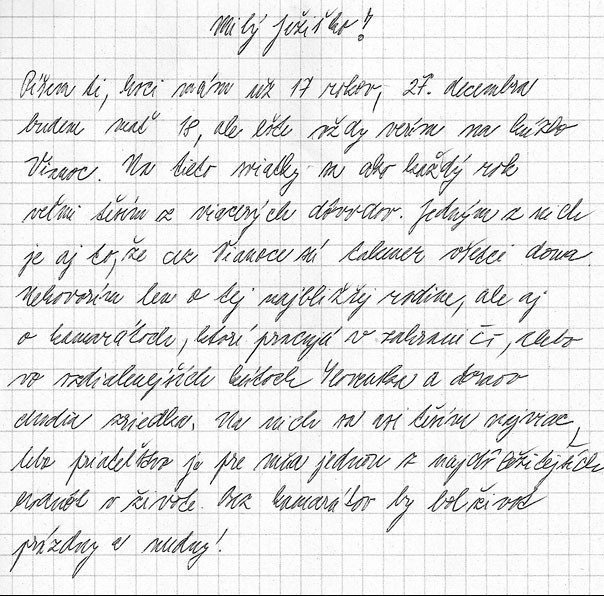 Milý Ježiško!
Píšem ti, hoci mám už 17 rokov, 27. decembra
budem mať 18, ale ešte vždy verím na kúzlo
Vianoc. Na tieto sviatky sa ako každý rok
veľmi teším z viacerých dôvodov. Jedným z nich
je aj to, že cez Vianoce sú takmer všetci doma.
Nehovorím len o tej najbližšej rodine, ale aj
o kamarátoch, ktorí pracujú v zahraničí, alebo
vo vzdialenejších kútoch Slovenska a domov
chodia zriedka. Na nich sa asi teším najviac,
lebo priateľstvo je pre mňa jednou z najdôležitejších
hodnôt v živote. Bez kamarátov by bol život
prázdny a nudný!